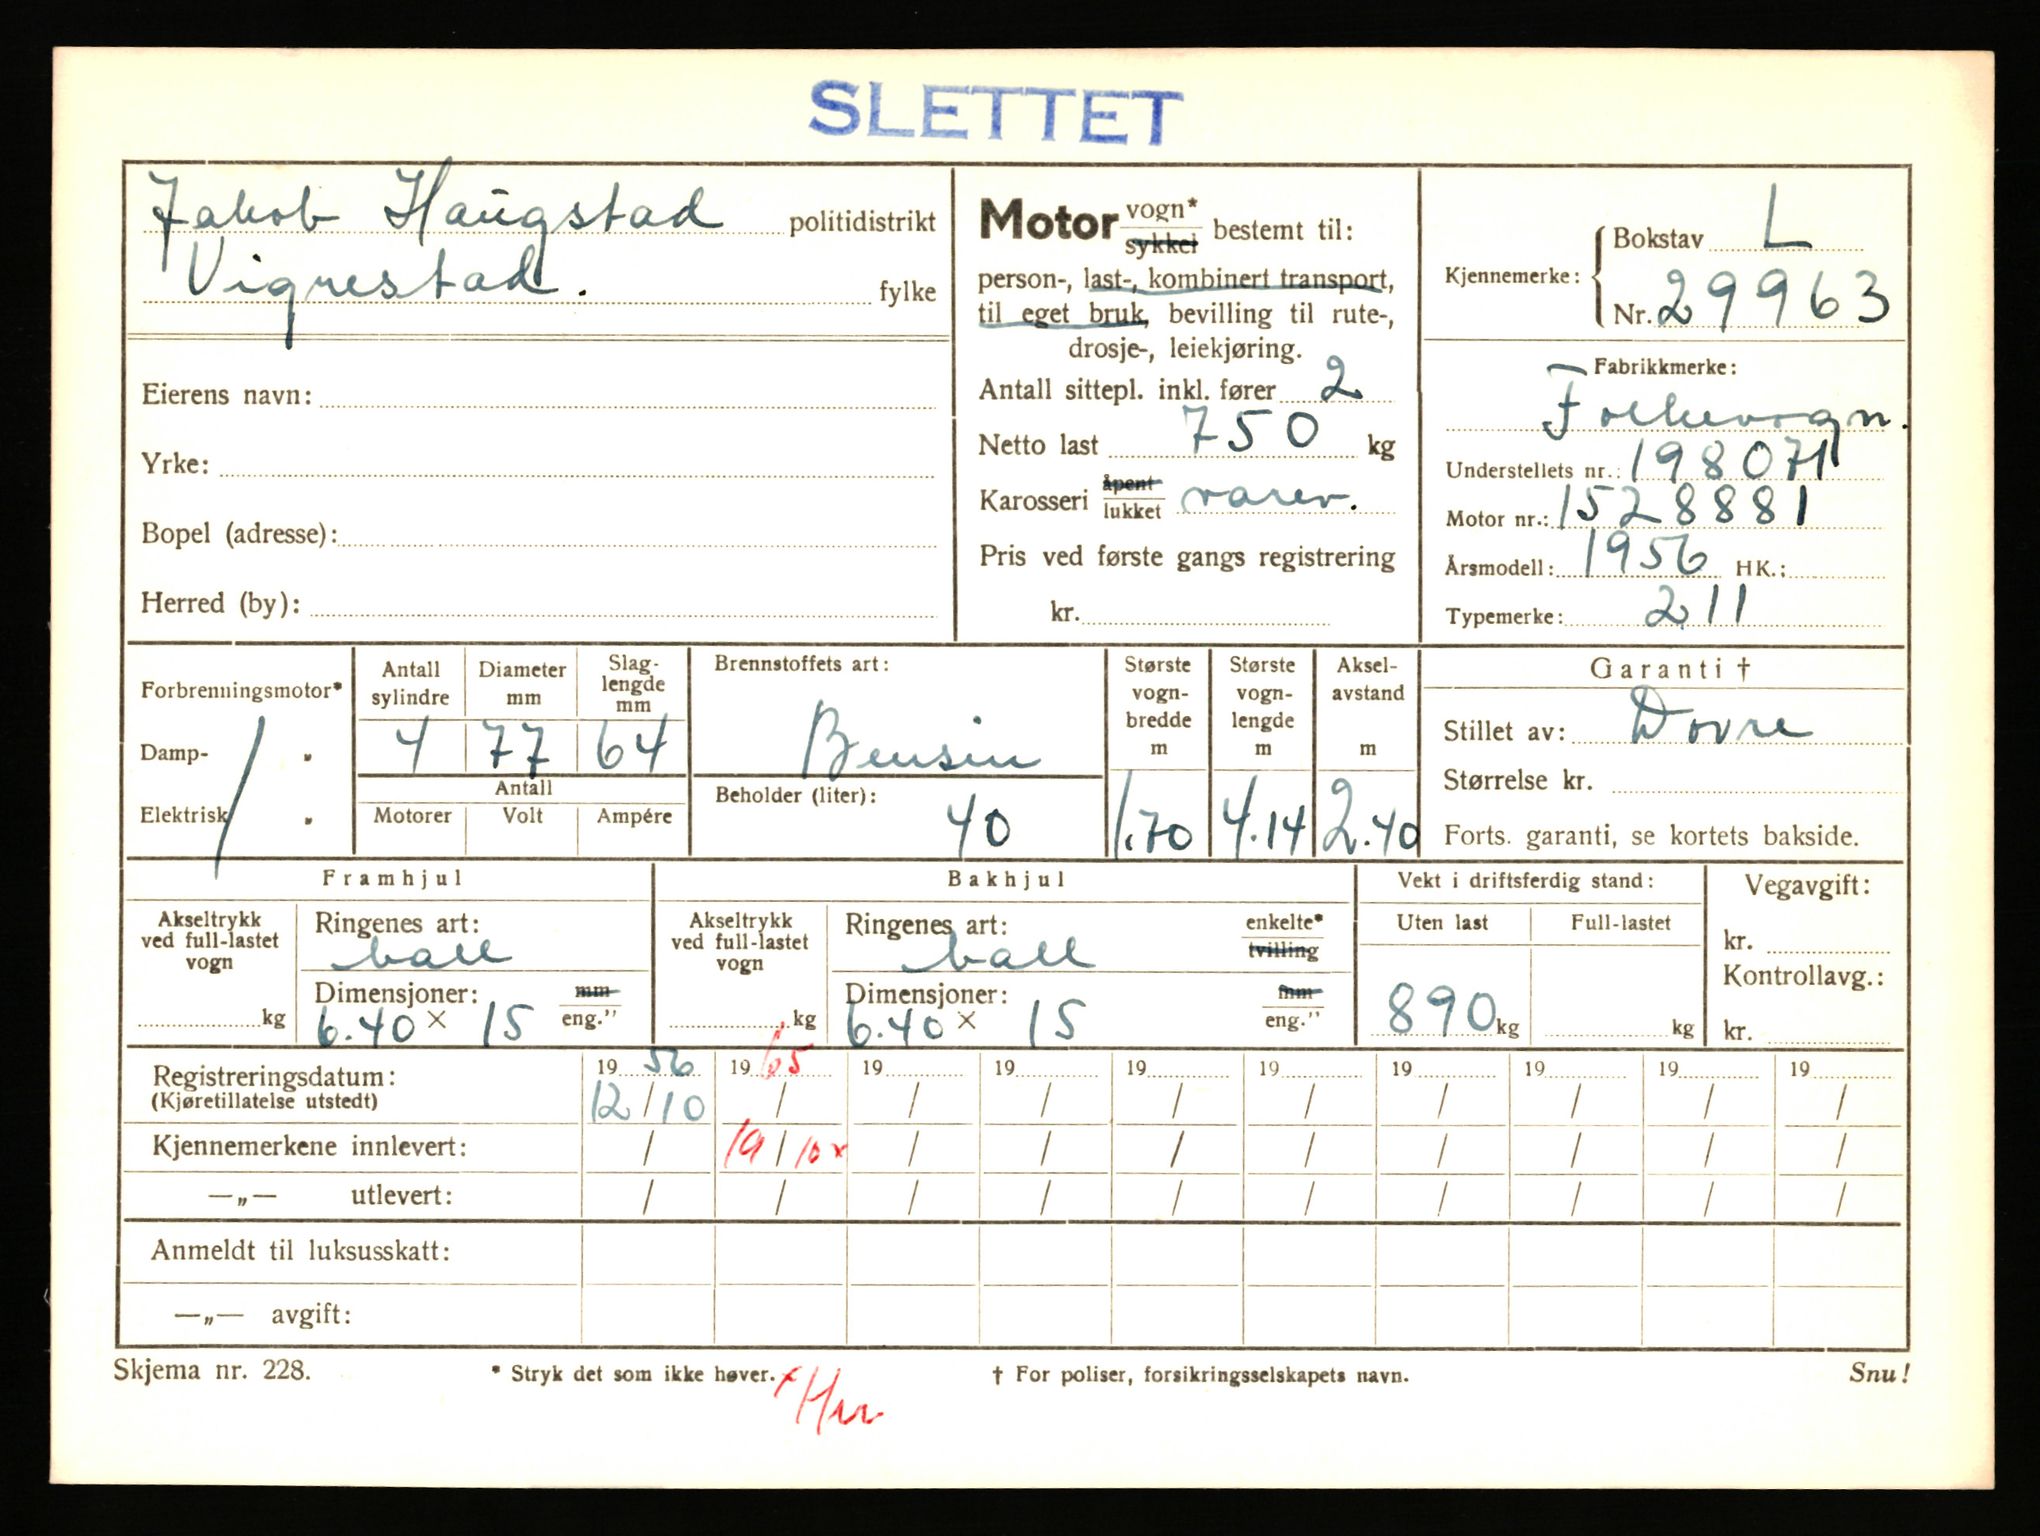 SLETTET
Jakob Haugstad politidistrikt
Vignestad. fylke
Eierens navn:
Yrke:
Bopel (adresse):
Herred (by):
Motor vogn* sykkel bestemt til:
person-, last-, kombinert transport,
til eget bruk, bevilling til rute-,
drosje-, leiekjøring.
Antall sittepl. inkl. fører 2
Netto last 750 kg
Karosseri åpent lukket varev.
Pris ved første gangs registrering
kr.
Kjennemerke: Bokstav L
Nr. 29963
Fabrikkmerke:
Folkevogn.
Understellets nr.: 198071
Motor nr.: 1528881
Årsmodell: 1956 HK.:
Typemerke: 211
Forbrenningsmotor*
Damp- "
Elektrisk "
Antall sylindre 4
Diameter mm 77
Slag-lengde mm 64
Antall
Motorer Volt Ampére
Brennstoffets art:
Bensin
Beholder (liter):
40
Største vogn-bredde m 1.70
Største vogn-lengde m 4.14
Aksel-avstand m 2.40
Garanti †
Stillet av: Dovre
Størrelse kr.
Forts. garanti, se kortets bakside.
Framhjul
Akseltrykk ved full-lastet vogn
kg
Ringenes art:
ball
Dimensjoner: mm eng."
6.40 × 15
Bakhjul
Akseltrykk ved full-lastet vogn
kg
Ringenes art: enkelte* tvilling
ball
Dimensjoner: mm eng."
6.40 × 15
Vekt i driftsferdig stand:
Uten last Full-lastet
890 kg kg
Vegavgift:
kr.
Kontrollavg.:
kr.
Registreringsdatum: 19 56 19 65 19 19 19 19 19 19 19 19
(Kjøretillatelse utstedt) 12/10 / / / / / / / / /
Kjennemerkene innlevert: / 19/10 x / / / / / / / /
—„— utlevert: / / / / / / / / / /
Anmeldt til luksusskatt:
—„— avgift:
Skjema nr. 228. * Stryk det som ikke høver. † For poliser, forsikringsselskapets navn. Snu!